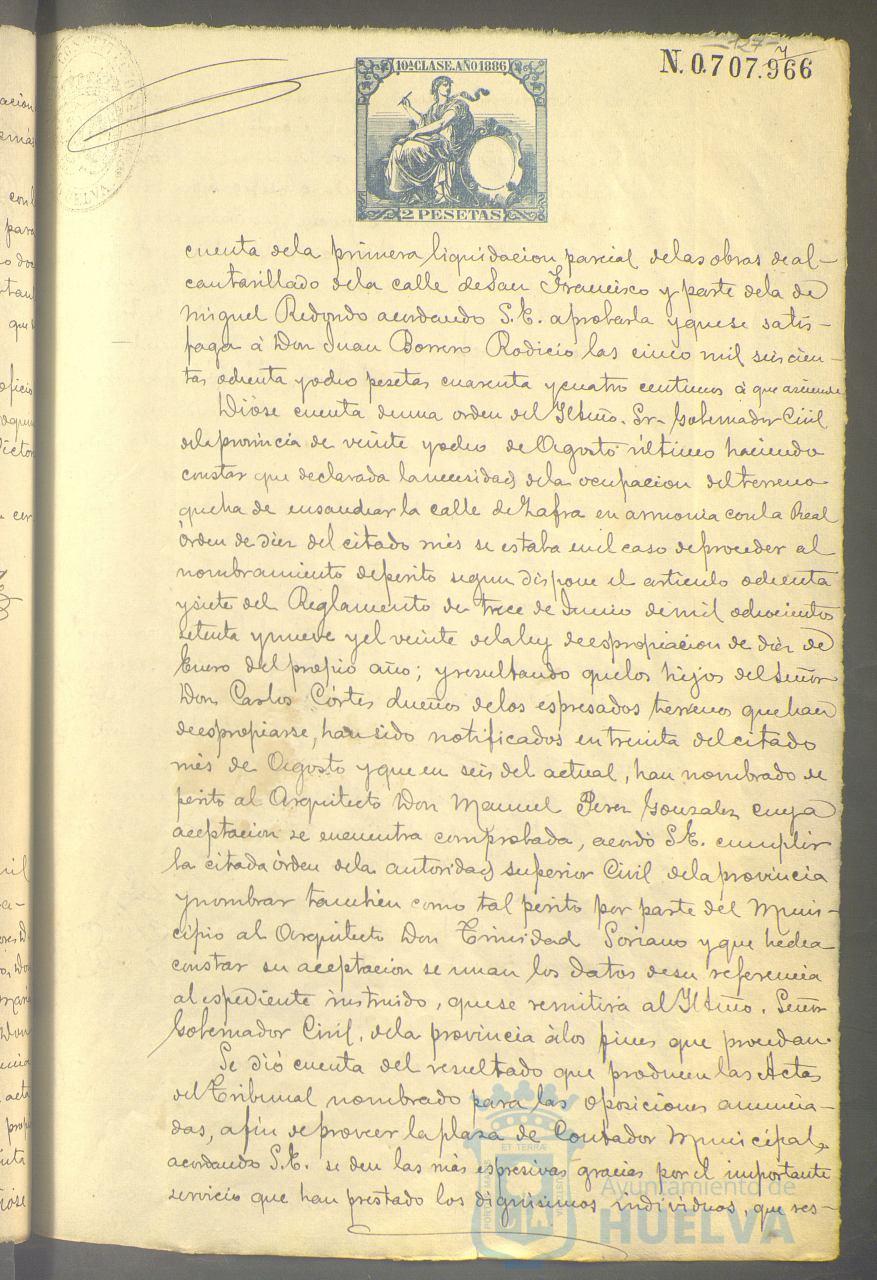 127
7
N. 0.707.966
10ª CLASE. AÑO 1886
2 PESETAS
HUELVA
cuenta dela primera liquidacion parcial delas obras de al-
cantarillado dela calle de San Francisco y parte dela de
Miguel Redondo acordando S.E. aprobarla y que se satis-
faga á Don Juan Borrero Rodicio las cinco mil seiscien-
tas ochenta y ocho pesetas cuarenta y cuatro centimos á que asciende
Dióse cuenta de una orden del Iltmo. Sr. Gobernador Civil
dela provincia de veinte y ocho de Agosto último haciendo
constar que declarada la necesidad dela ocupacion del terreno
que ha de ensanchar la calle de Zafra en armonia con la Real
Órden de diez del citado més se estaba en el caso de proceder al
nombramiento de perito segun dispone el articulo ochenta
y siete del Reglamento de trece de Junio de mil ochocientos
setenta y nueve y el veinte dela ley de espropiacion de diez de
Enero del propio año; y resultando que los hijos del Señor
Don Carlos Córtes dueños delos espresados terrenos que han
de espropiarse, han sido notificados en treinta del citado
més de Agosto y que en seis del actual, han nombrado de
perito al Arquitecto Don Manuel Perez Gonzalez cuya
aceptacion se encuentra comprobada, acordó S.E. cumplir
la citada órden dela autoridad superior Civil dela provincia
y nombrar tambien como tal perito por parte del Muni-
cipio al Arquitecto Don Trinidad Soriano y que hecha
constar su aceptacion se unan los datos de su referencia
al espediente instruido, que se remitirá al Iltmo. Señor
Gobernador Civil. dela provincia á los fines que procedan.
Se dió cuenta del resultado que producen las Actas
del Tribunal nombrado para las oposiciones anuncia-
das, afin de proveer la plaza de Contador Municipal,
acordando S.E. se den las más espresivas gracias por el importante
servicio que han prestado los dignisimos individuos, que res-
Ayuntamiento de
HUELVA